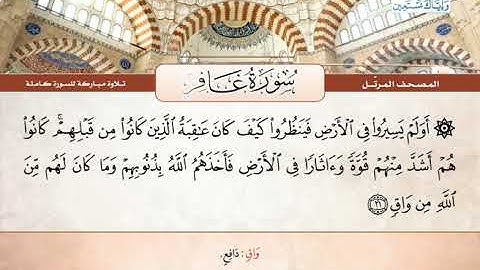 وَإِيَّاكَ نَسْتَعِينُ
المصحف المرتّل
سُورَةُ غَافِر
تلاوة مباركة للسورة كاملة
۞ أَوَلَمْ يَسِيرُوا۟ فِى ٱلْأَرْضِ فَيَنظُرُوا۟ كَيْفَ كَانَ عَـٰقِبَةُ ٱلَّذِينَ كَانُوا۟ مِن قَبْلِهِمْ ۚ كَانُوا۟
هُمْ أَشَدَّ مِنْهُمْ قُوَّةً وَءَاثَارًا فِى ٱلْأَرْضِ فَأَخَذَهُمُ ٱللَّهُ بِذُنُوبِهِمْ وَمَا كَانَ لَهُم مِّنَ
ٱللَّهِ مِن وَاقٍ ٢١
وَاقٍ: دَافِعٍ.